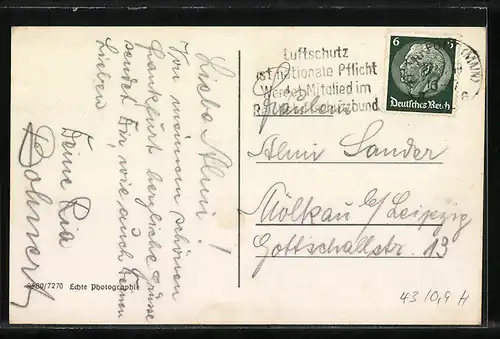 Liebe Almi!
Von meinem schönen
Frankfurt herzliche Grüsse
sendet Dir, wie auch Deinen
Lieben
Deine Ria
9880/7270 Echte Photographie
Luftschutz
ist nationale Pflicht
Werdet Mitglied im
(MAIN)
6 6
Deutsches Reich
Fräulein
Almi Sander
Mölkau b/Leipzig
Gottschallstr. 13
43 10,9 H